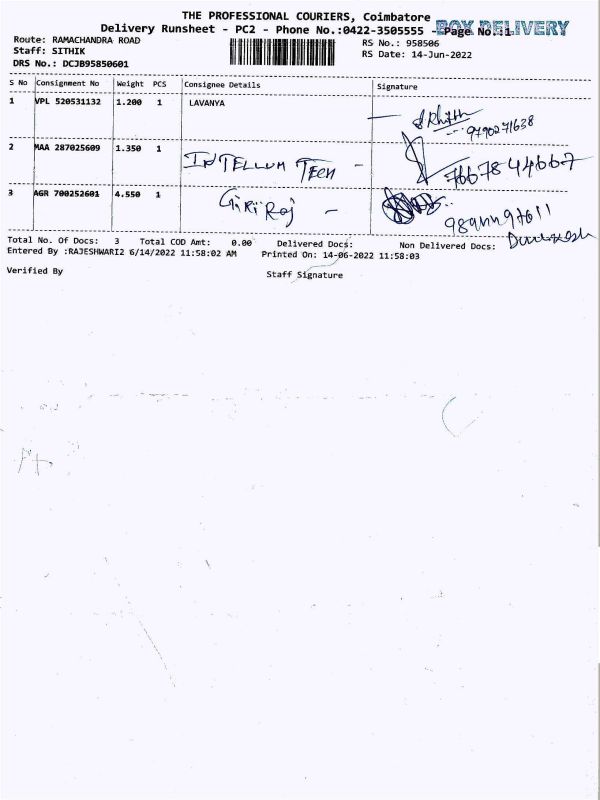 THE PROFESSIONAL COURIERS, Coimbatore
BOX DELIVERY
Delivery Runsheet - PC2 - Phone No.:0422-3505555 - Page No.:1
Route: RAMACHANDRA ROAD
RS No.: 958506
Staff: SITHIK
RS Date: 14-Jun-2022
DRS No.: DCJB95850601
S No Consignment No Weight PCS Consignee Details Signature
1 VPL 520531132 1.200 1 LAVANYA
9790271638
2 MAA 287025609 1.350 1 INTELLUM TECH -
7667844667
3 AGR 700252601 4.550 1 GiRiRaj -
Total No. Of Docs: 3 Total COD Amt: 0.00 Delivered Docs: Non Delivered Docs:
Entered By :RAJESHWARI2 6/14/2022 11:58:02 AM Printed On: 14-06-2022 11:58:03
Verified By
Staff Signature